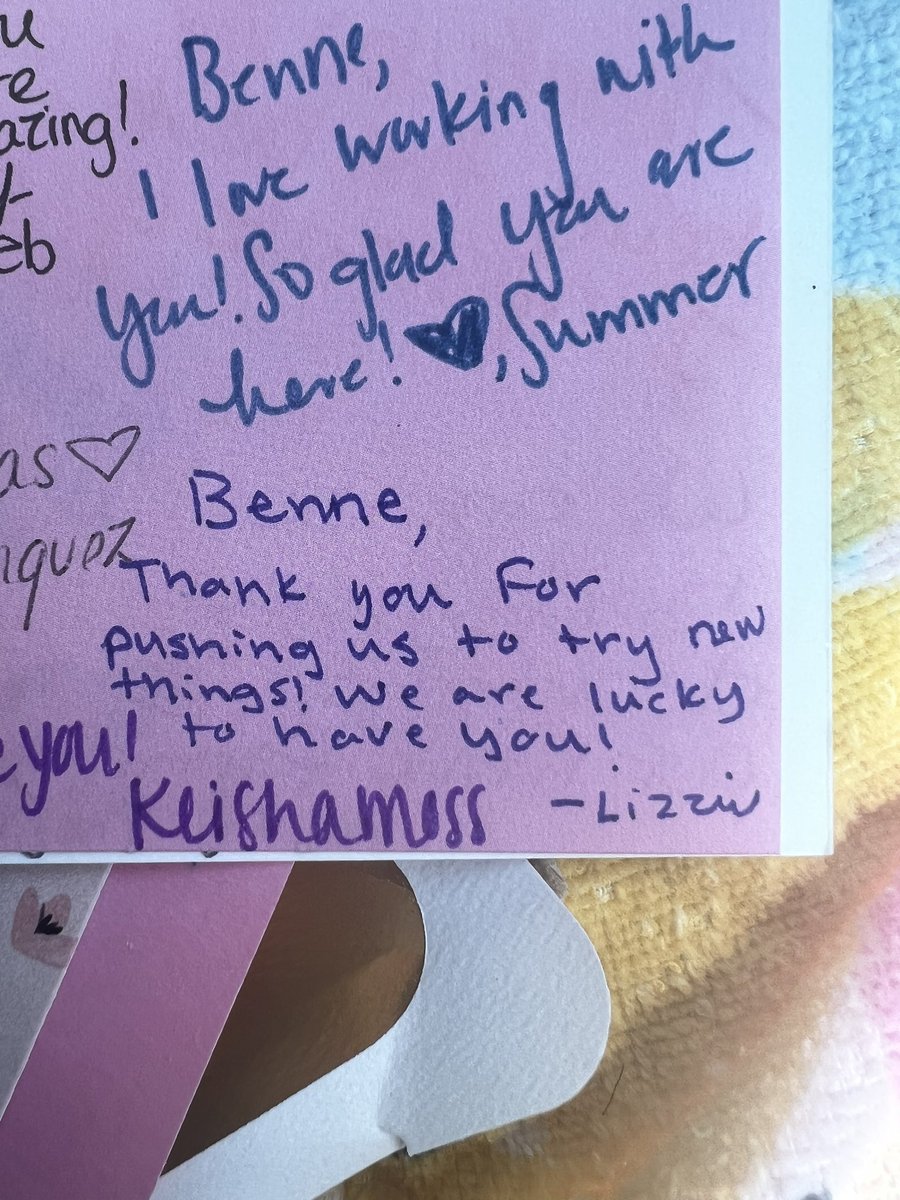 Benne,
I love working with
you! So glad you are
here! ♥, Summer
Benne,
Thank you For
pushing us to try new
things! We are lucky
to have you!
-Lizzie
you!
Keisha Moss